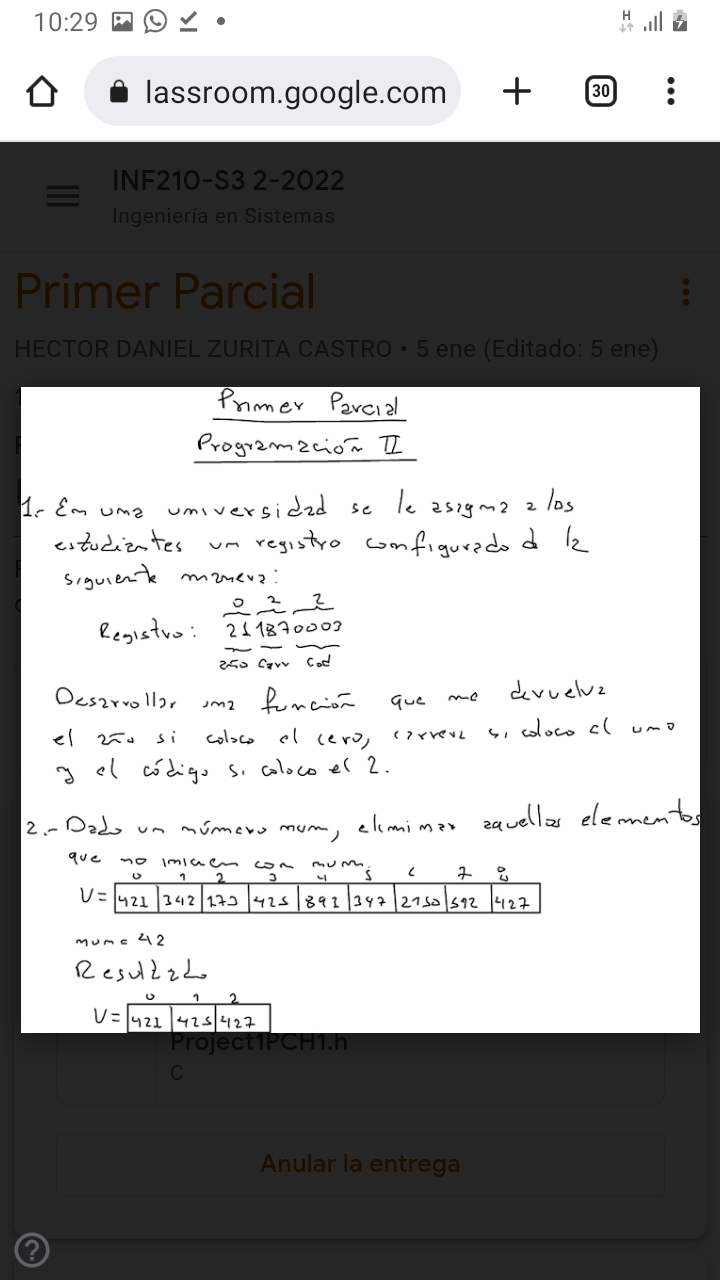 10:29
H
lassroom.google.com
30
INF210-S3 2-2022
Ingeniería en Sistemas
Primer Parcial
HECTOR DANIEL ZURITA CASTRO • 5 ene (Editado: 5 ene)
Primer Parcial
Programación II
1.- En una universidad se le asigna a los
estudiantes un registro configurado d la
siguiente manera:
0 2 2
Registro: 211870003
año Carr Cod
Desarrollar una función que me devuelva
el año si coloco el cero, carrera si coloco el uno
y el código si coloco el 2.
2.- Dado un número num, eliminar aquellos elementos
que no inicien con num.
0 1 2 3 4 5 6 7 8
V= 421 342 173 425 892 347 2150 592 427
num= 42
Resultado
0 1 2
V= 421 425 427
Project1PCH1.h
C
Anular la entrega
?